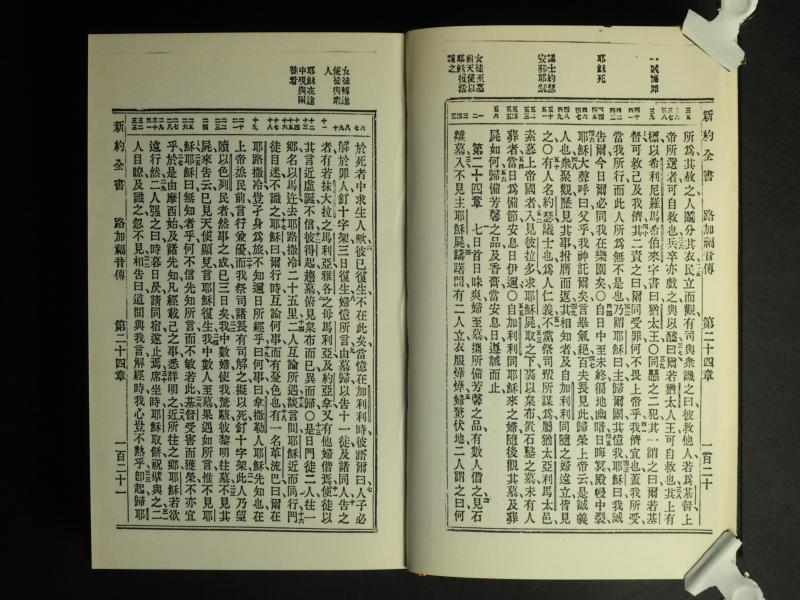 新約全書　路加福音傳　第二十四章　一百二十
耶穌死
議士約瑟
安葬耶穌
女徒至墓
前天使以
耶穌復活
語之
所爲其赦之人鬮分其衣民立而觀有司與衆譏之曰彼救他人若爲基督上
帝所選者可自救也兵卒亦戲之與以醯曰爾若猶太人王可自救也其上有
標以希利尼羅馬希伯來字書曰猶太王〇同懸之二犯其一誚之曰爾若基
督可救己及我儕其二責之曰爾同受罪何不畏上帝乎我儕宜也蓋我所受
當我所行而此人所爲無不是也乃謂耶穌曰主歸爾國其憶我耶穌曰我誠
告爾今日爾必同我在樂園矣〇自日中至未終徧地幽暗日晦冥殿幔中裂
耶穌大聲呼曰父乎我神託爾矣言畢氣絕百夫長見此歸榮上帝云是誠義
人也衆聚觀旣見其事拊膺而返其相知者及自加利利同隨之婦遠立皆見
之〇有人名約瑟議士也爲人仁義不黨祭司衆所謀爲屬猶太亞利馬太邑
素慕上帝國者入見彼拉多求耶穌屍取之下裹以枲布置石鑿之墓未有人
葬者當日爲備節安息日伊邇〇自加利利同耶穌來之婦隨後觀其墓及葬
屍如何歸備芳馨之品及香膏當安息日遵誡而止
第二十四章　七日首日昧爽婦至墓攜所備芳馨之品有數人偕之見石
離墓入不見主耶穌屍躊躇間有二人立衣服燁燁婦驚伏地二人謂之曰何
女徒轉述
使徒與衆
人
耶穌在途
中現與兩
徒看
於死者中求生人歟彼已復生不在此矣當憶在加利利時彼語爾曰人子必
解於罪人釘十字架三日復生婦憶所言由墓歸以告十一徒及諸同人告之
者有若抹大拉之馬利亞雅各之母馬利亞及約亞拿又有他婦偕焉使徒以
其言近虛誕不信彼得起趨墓俯見枲布而已異而歸〇是日門徒二人往一
鄉名以馬迕去耶路撒冷二十五里二人互論所遇談言間耶穌近而同行門
徒目迷不識之耶穌曰爾行時互論何事而有憂色也有一名革流巴曰爾在
耶路撒冷豈孑身爲旅不知邇日所經乎曰何事曰拿撒勒人耶穌先知也在
上帝衆民前言行兼優而我祭司諸長有司解之擬以死釘十字架此人乃望
贖以色列民者然事之成已三日矣我中數婦使我駭彼黎明往墓不見其
屍來告云已見天使顯見言耶穌復生我中數人至墓果遇如所言惟不見耶
穌耶穌曰無知者乎何不信先知所言而不敏若此基督受害而獲榮不亦宜
乎於是由摩西始及諸先知凡經載己之事悉詳明之近所往之鄉耶穌若欲
遠行然二人强之曰時暮日昃請同宿遂止焉席坐時耶穌取餅祝擘與之二
人目瞭及識之忽不見相吿曰道間與我言解經時我心豈不熱乎卽起歸耶
新約全書　路加福音傳　第二十四章　一百二十一